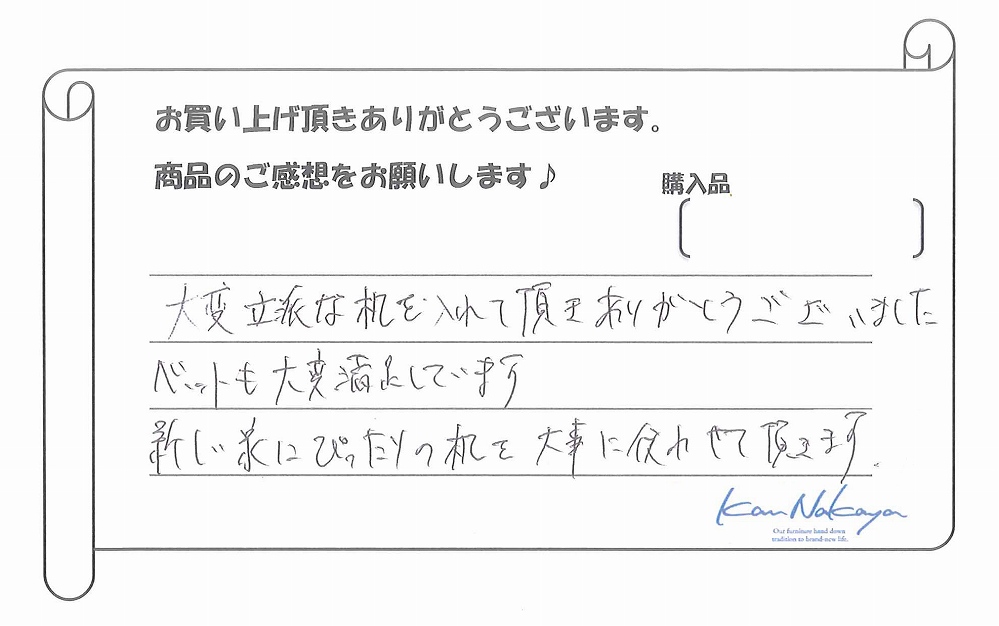 お買い上げ頂きありがとうございます。
商品のご感想をお願いします♪
購入品
大変立派な机を入れて頂きありがとうございました
ベットも大変満足しています
新しい家にぴったりの机を大事に使わせて頂きます。
Kan Nakaya
Our furniture hand down
tradition to brand-new life.